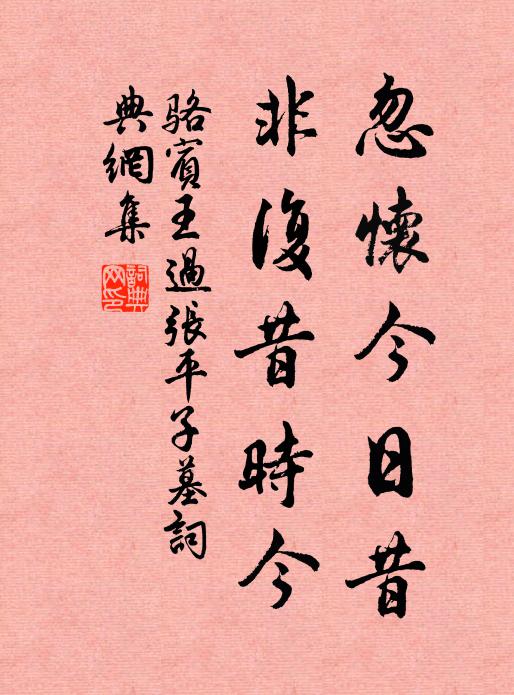 忽懷今日昔
非復昔時今
駱賓王過張平子墓詞
典網集
詞典
网印